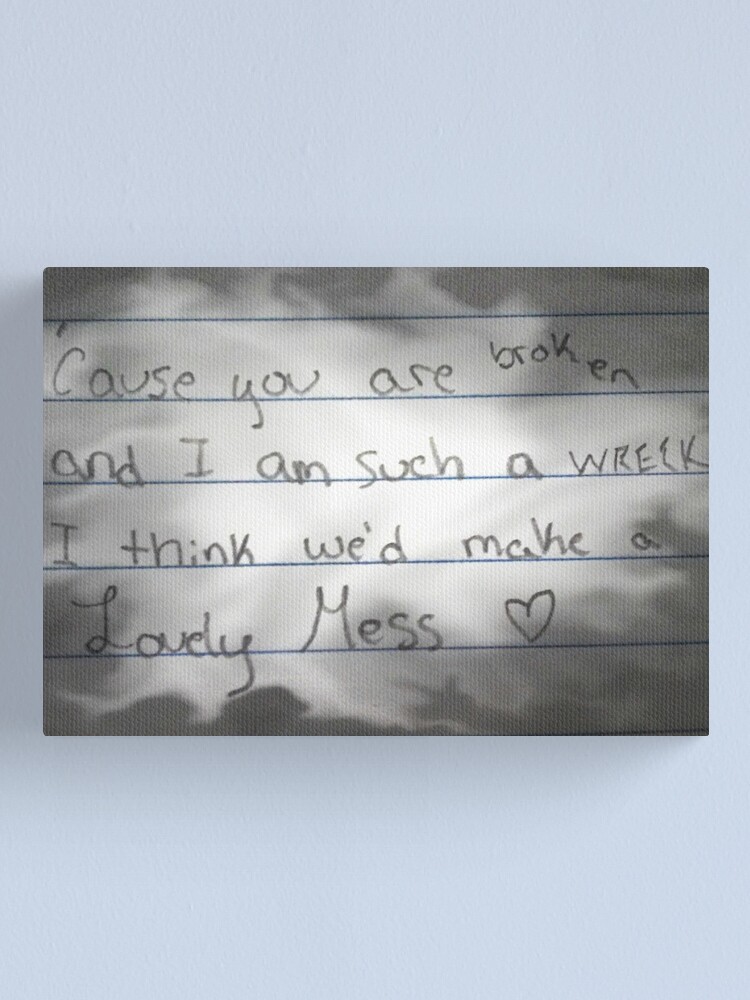 'Cause you are broken
and I am such a WRECK
I think we'd make a
Lovely Mess ♡